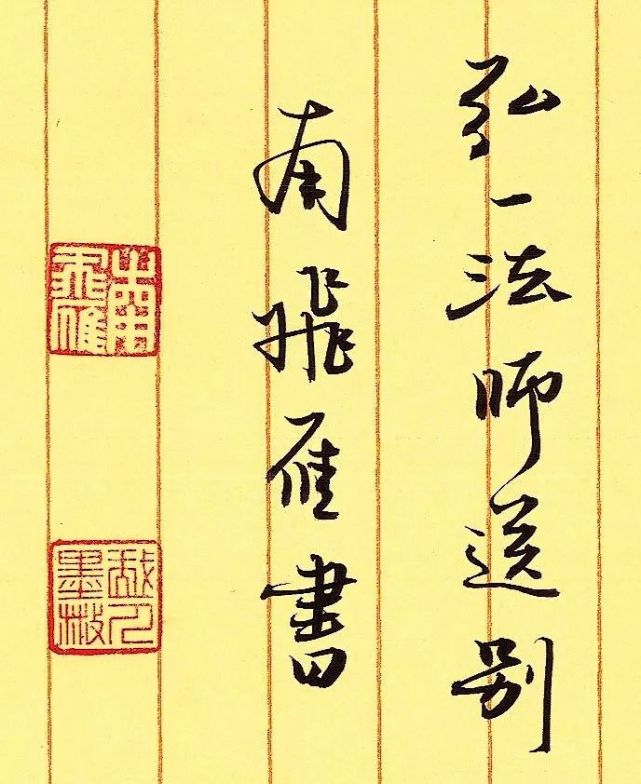 弘一法师送别
南飛雁書
南飛雁